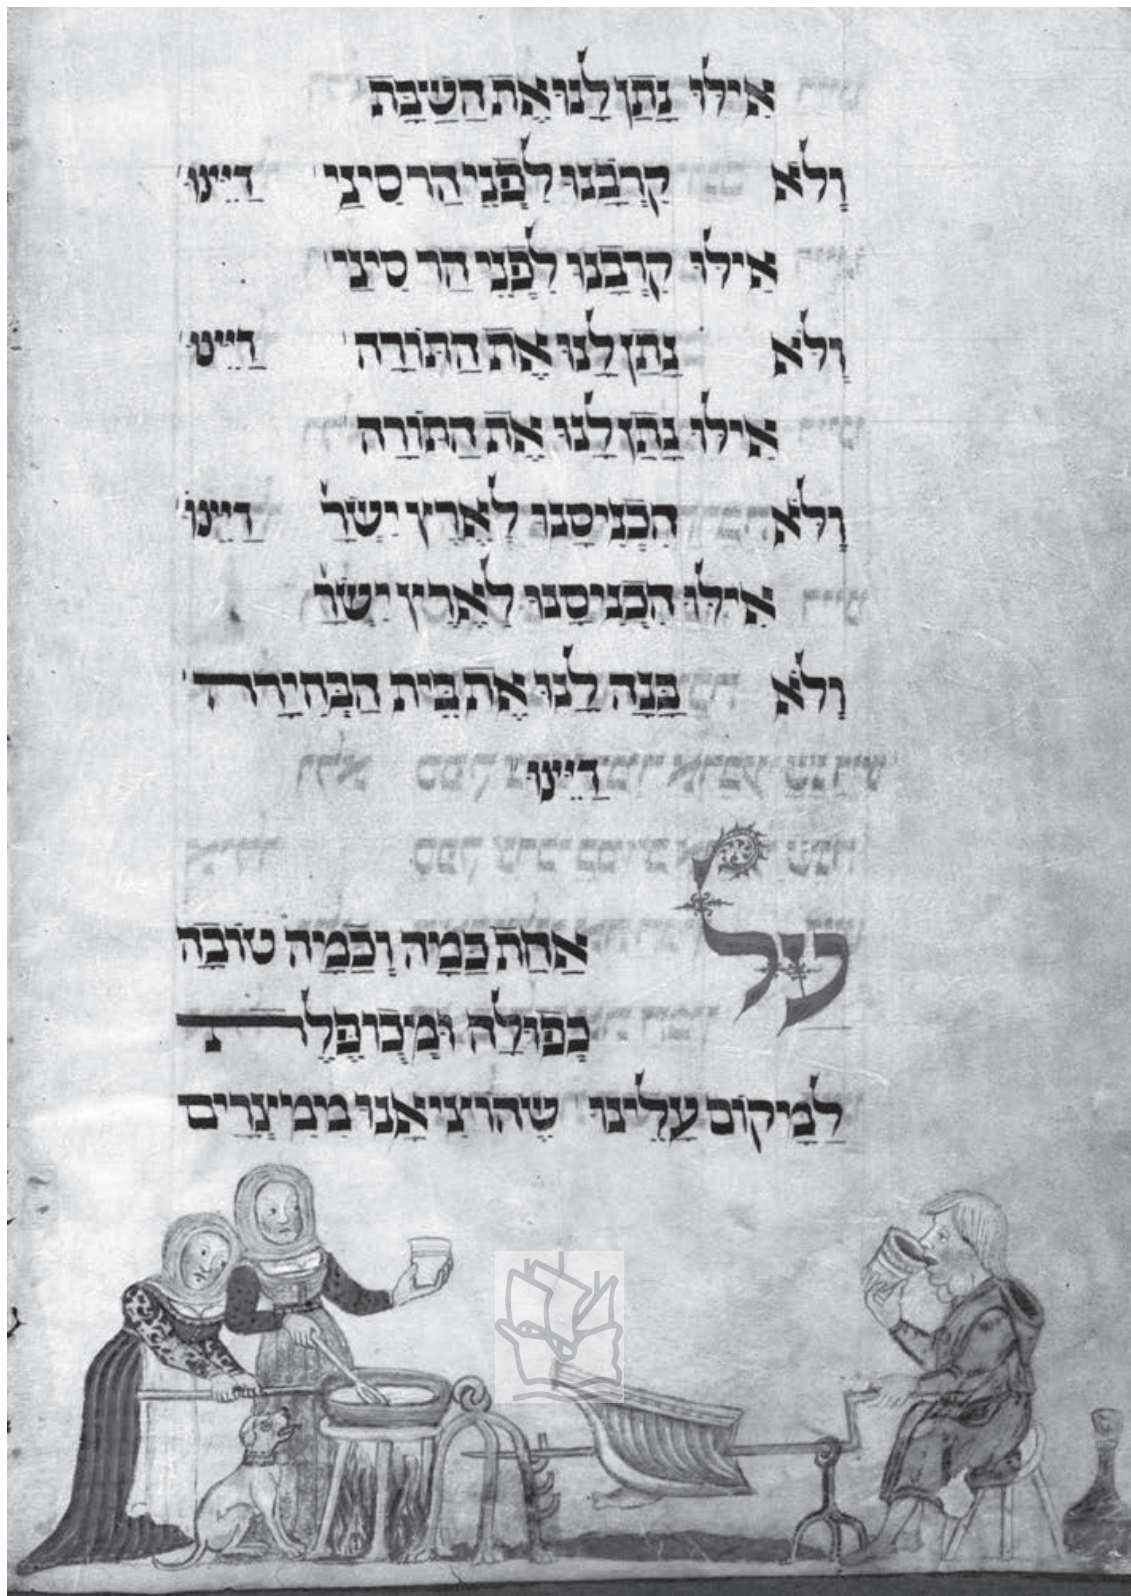 אילו נתן לנו את השבת
ולא קרבנו לפני הר סיני דיינו
אילו קרבנו לפני הר סיני
ולא נתן לנו את התורה דיינו
אילו נתן לנו את התורה
ולא הכניסנו לארץ ישר דיינו
אילו הכניסנו לארץ ישר
ולא בנה לנו את בית הבחירה
דיינו
על אחת כמה וכמה טובה
כפולה ומכופלת
למקום עלינו שהוציאנו ממצרים